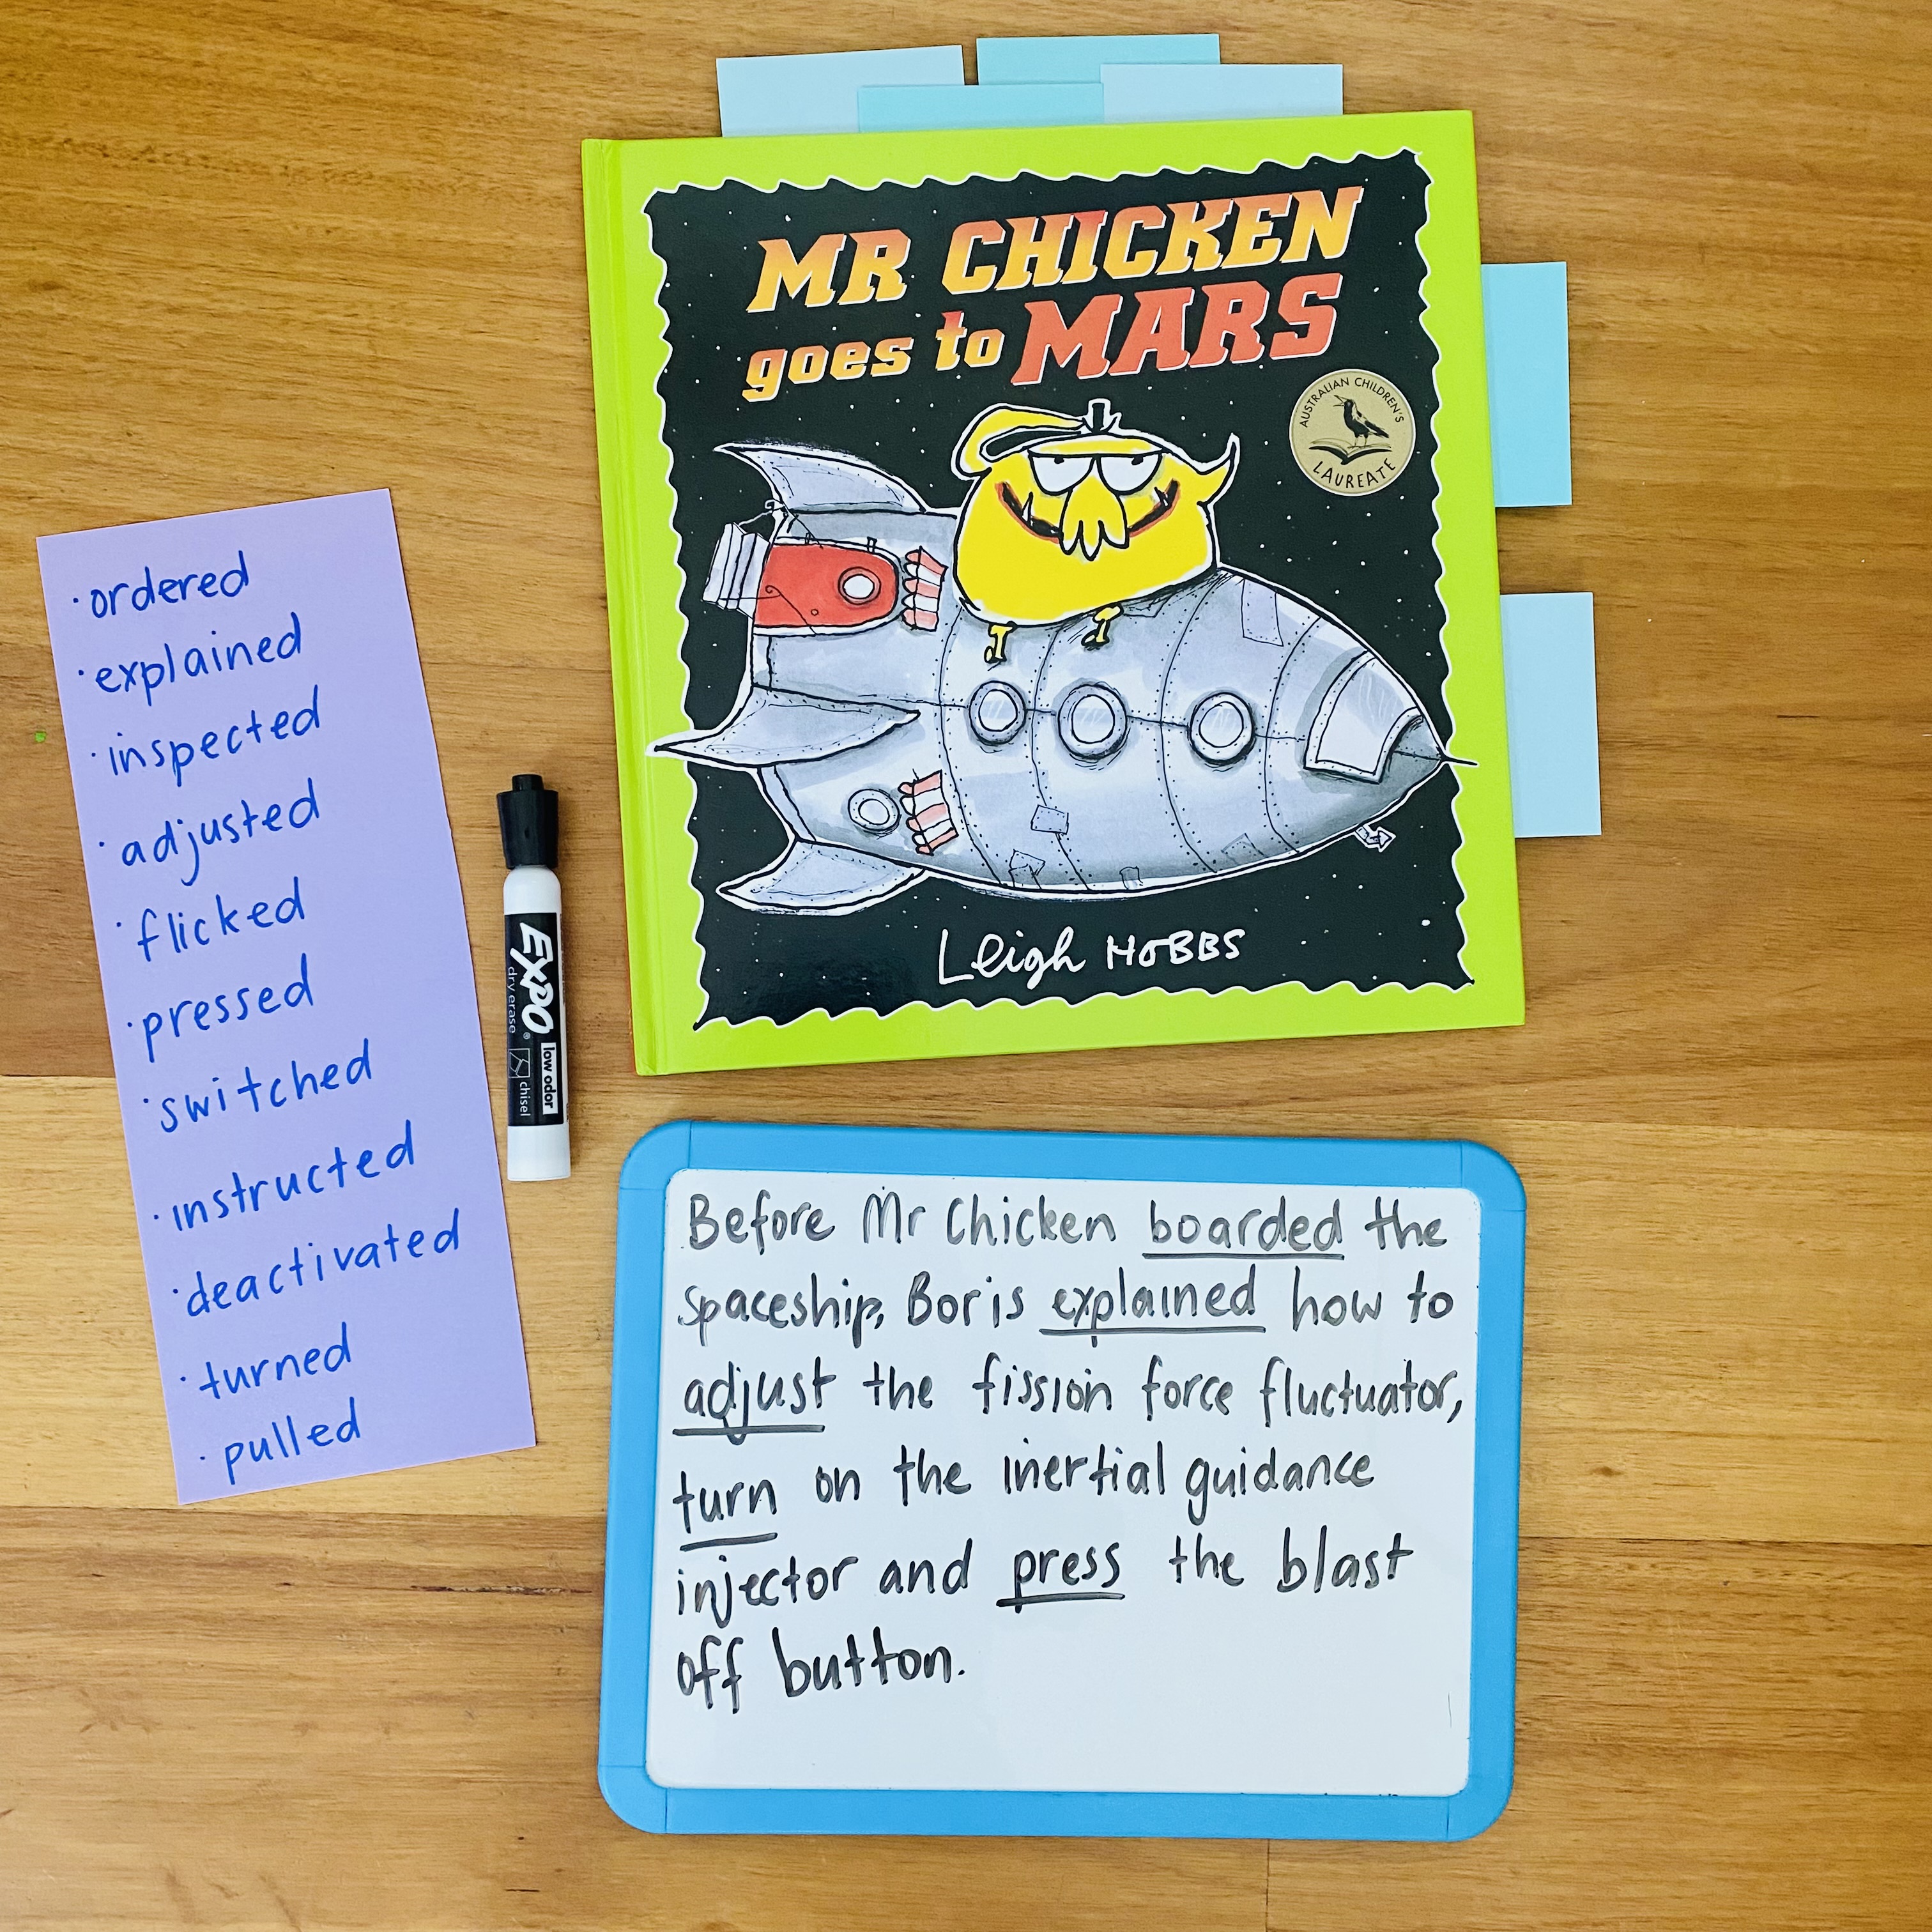 MR CHICKEN
goes to MARS
AUSTRALIAN CHILDREN'S
LAUREATE
Leigh HOBBS
· ordered
· explained
· inspected
· adjusted
· flicked
· pressed
· switched
· instructed
· deactivated
· turned
· pulled
EXPO®
dry erase
low odor
chisel
Before Mr Chicken boarded the
spaceship, Boris explained how to
adjust the fission force fluctuator,
turn on the inertial guidance
injector and press the blast
off button.